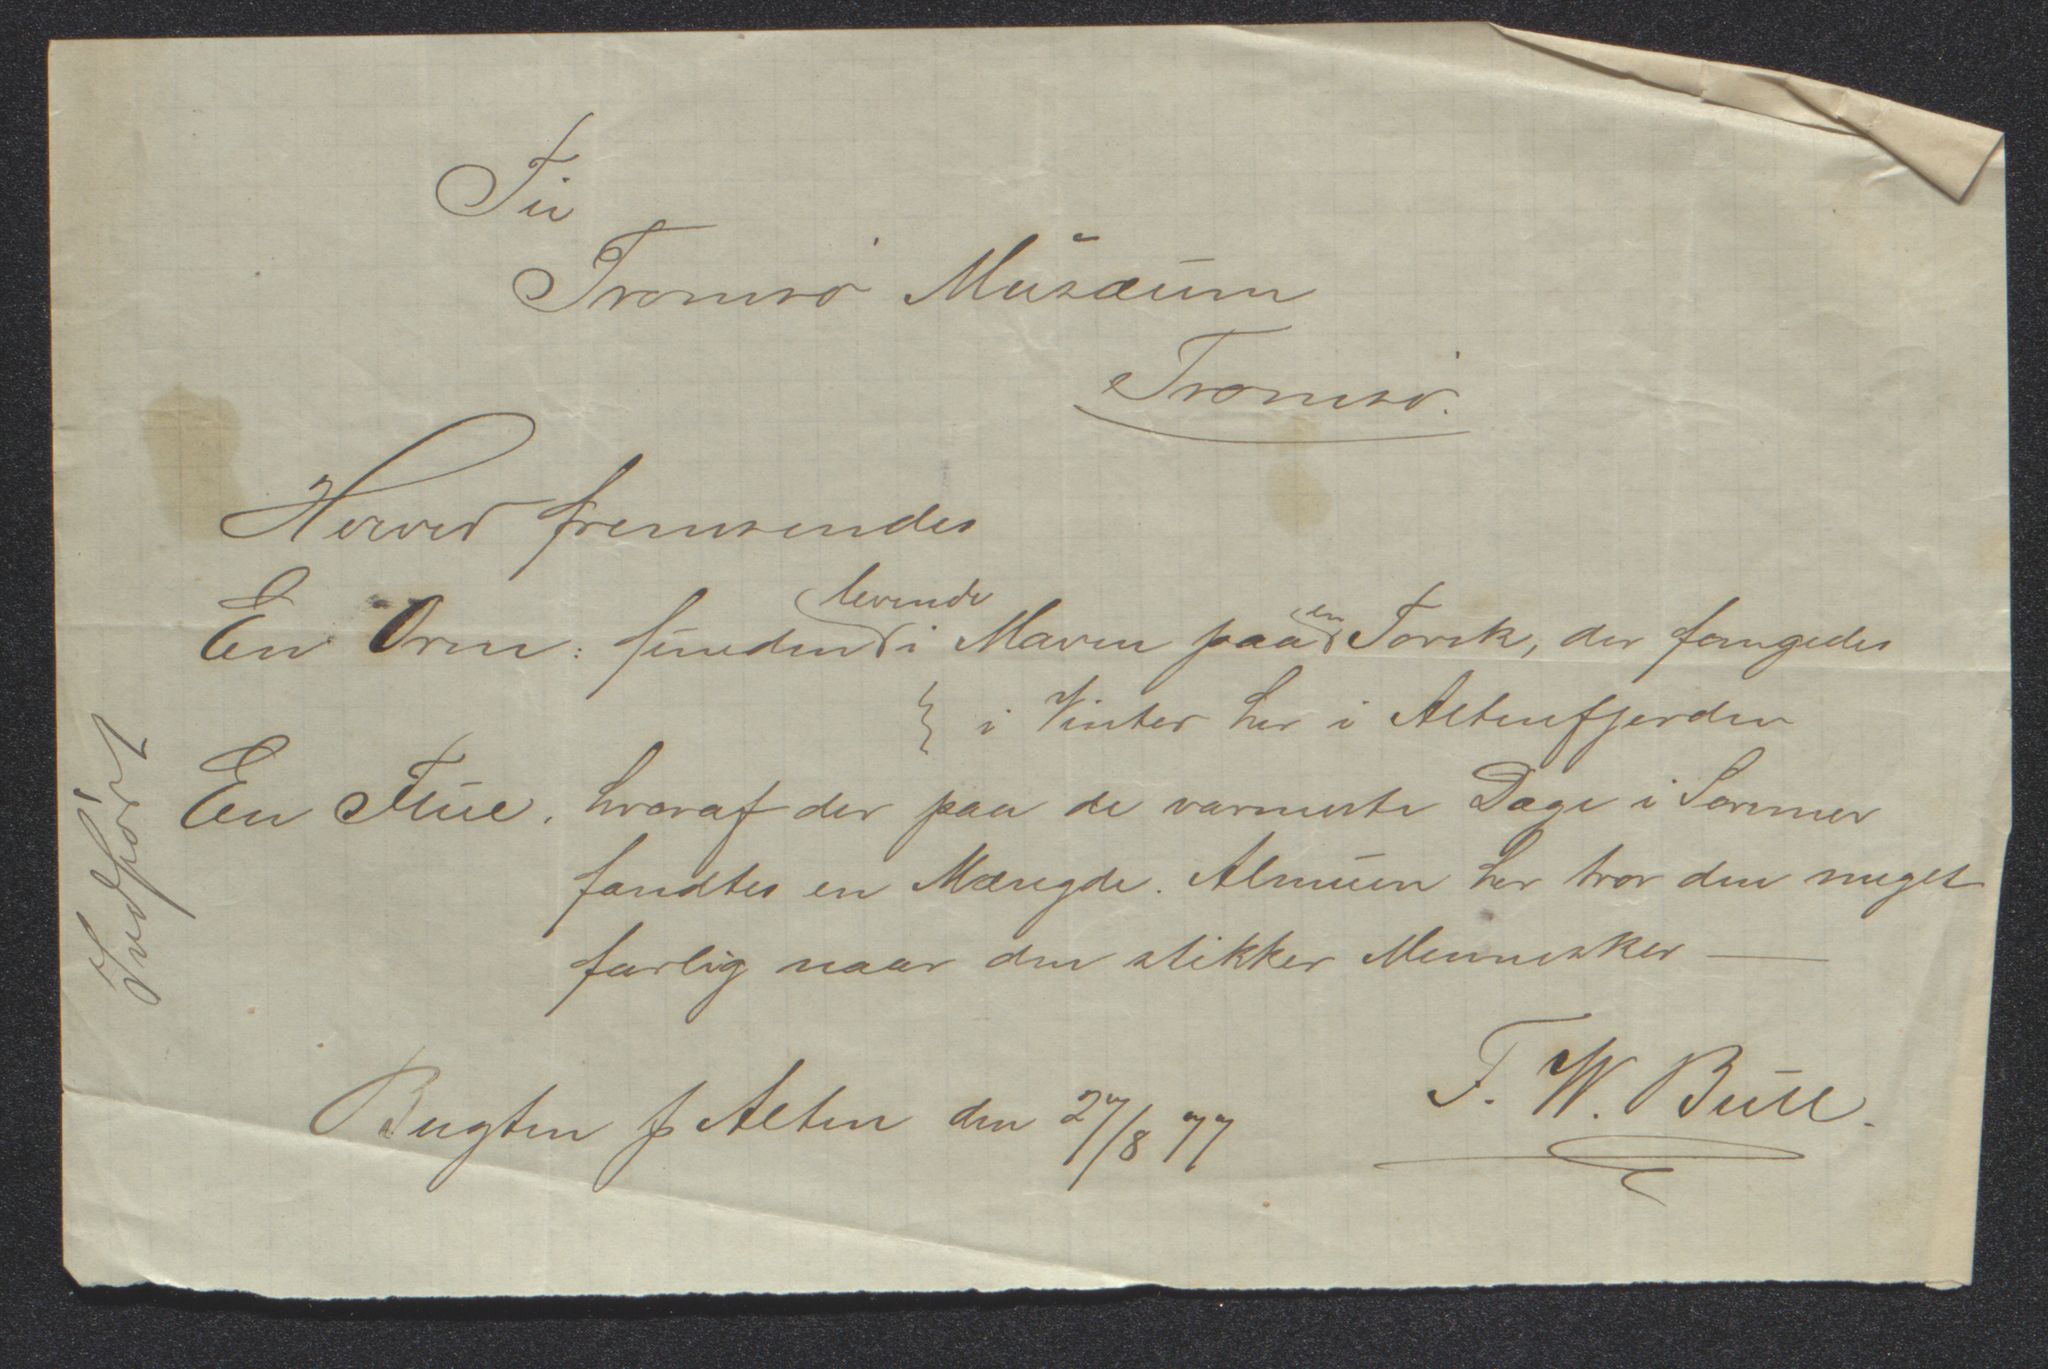 Til
Tromsø Musæum
Tromsø.
Herved fremsendes
En Orm: funden levende i Maven paa en Torsk, der fangedes
i Vinter her i Altenfjorden
En Flue, hvoraf der paa de varmeste Dage i Sommer
fandtes en Mængde. Almuen her tror den meget
farlig naar den stikker Mennesker —
Bugten pr Alten den 27/8 77
F. W. Bull.
Indført